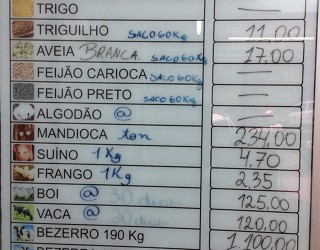 TRIGO —
TRIGUILHO SACO 60Kg 11,00
AVEIA BRANCA SACO 60Kg 17,00
FEIJÃO CARIOCA SACO 60Kg —
FEIJÃO PRETO SACO 60Kg —
ALGODÃO @ —
MANDIOCA ton 234,00
SUÍNO 1Kg 4,70
FRANGO 1Kg 2,35
BOI @ 30 dias 125,00
VACA @ 30 dias 120,00
BEZERRO 190 Kg 1.100,00